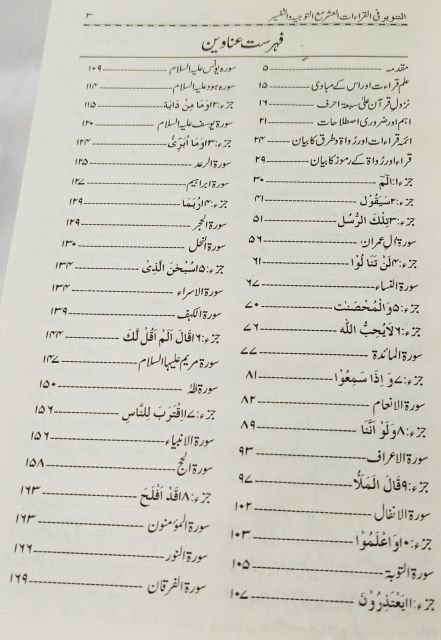 التنویر فی القراءات العشر مع التوجیہ والتفسیر ۳
فہرست عناوین
مقدمہ ۵
علم قراءات اور اس کے مبادی ۱۵
نزول قرآن علیٰ سبعۃ احرف ۱۶
اہم اور ضروری اصطلاحات ۲۱
ائمہ قراءات اور رُواۃ وطرق کا بیان ۲۴
قراء اور رُواۃ کے رموز کا بیان ۲۹
جزء:۱ الٓمّ ۳۰
جزء:۲ سَیَقُوْلُ ۴۱
جزء:۳ تِلْکَ الرُّسُلُ ۵۱
سورۃ اٰل عمران ۵۶
جزء:۴ لَنْ تَنَالُوْا ۶۱
سورۃ النساء ۶۷
جزء:۵ وَالْمُحْصَنٰتُ ۷۰
جزء:۶ لَایُحِبُّ اللہُ ۷۶
سورۃ المائدۃ ۷۷
جزء:۷ وَ اِذَا سَمِعُوْا ۸۱
سورۃ الانعام ۸۲
جزء:۸ وَلَوْ اَنَّنَا ۸۹
سورۃ الاعراف ۹۳
جزء:۹ قَالَ الْمَلَأُ ۹۷
سورۃ الانفال ۱۰۲
جزء:۱۰ وَاعْلَمُوْا ۱۰۳
سورۃ التوبۃ ۱۰۵
جزء:۱۱ یَعْتَذِرُوْنَ ۱۰۷
سورہ یونس علیہ السلام ۱۰۹
سورہ ہود علیہ السلام ۱۱۴
جزء:۱۲ وَمَا مِنْ دَابَّۃٍ ۱۱۵
سورۃ یوسف علیہ السلام ۱۲۰
جزء:۱۳ وَمَا اُبَرِّیُٔ ۱۲۴
سورۃ الرعد ۱۲۵
سورۃ ابراہیم ۱۲۷
جزء:۱۴ رُبَمَا ۱۲۹
سورۃ الحجر ۱۲۹
سورۃ النحل ۱۳۰
جزء:۱۵ سُبْحٰنَ الَّذِیْ ۱۳۴
سورۃ الاسراء ۱۳۴
سورۃ الکہف ۱۳۹
جزء:۱۶ قَالَ اَلَمْ اَقُلْ لَّکَ ۱۴۴
سورۃ مریم علیہا السلام ۱۴۷
سورۃ طٰہٰ ۱۵۰
جزء:۱۷ اِقْتَرَبَ لِلنَّاسِ ۱۵۶
سورۃ الانبیاء ۱۵۶
سورۃ الحج ۱۵۸
جزء:۱۸ قَدْ اَفْلَحَ ۱۶۳
سورۃ المؤمنون ۱۶۳
سورۃ النور ۱۶۶
سورۃ الفرقان ۱۶۹